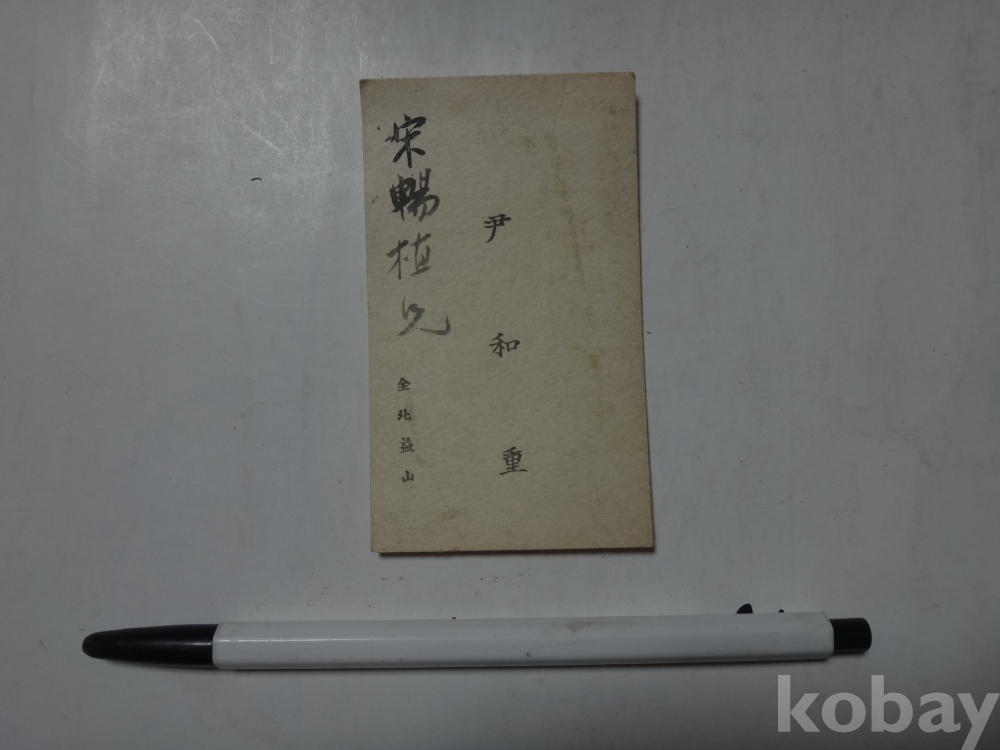 尹和重
宋暢植兄
全北益山
kobay